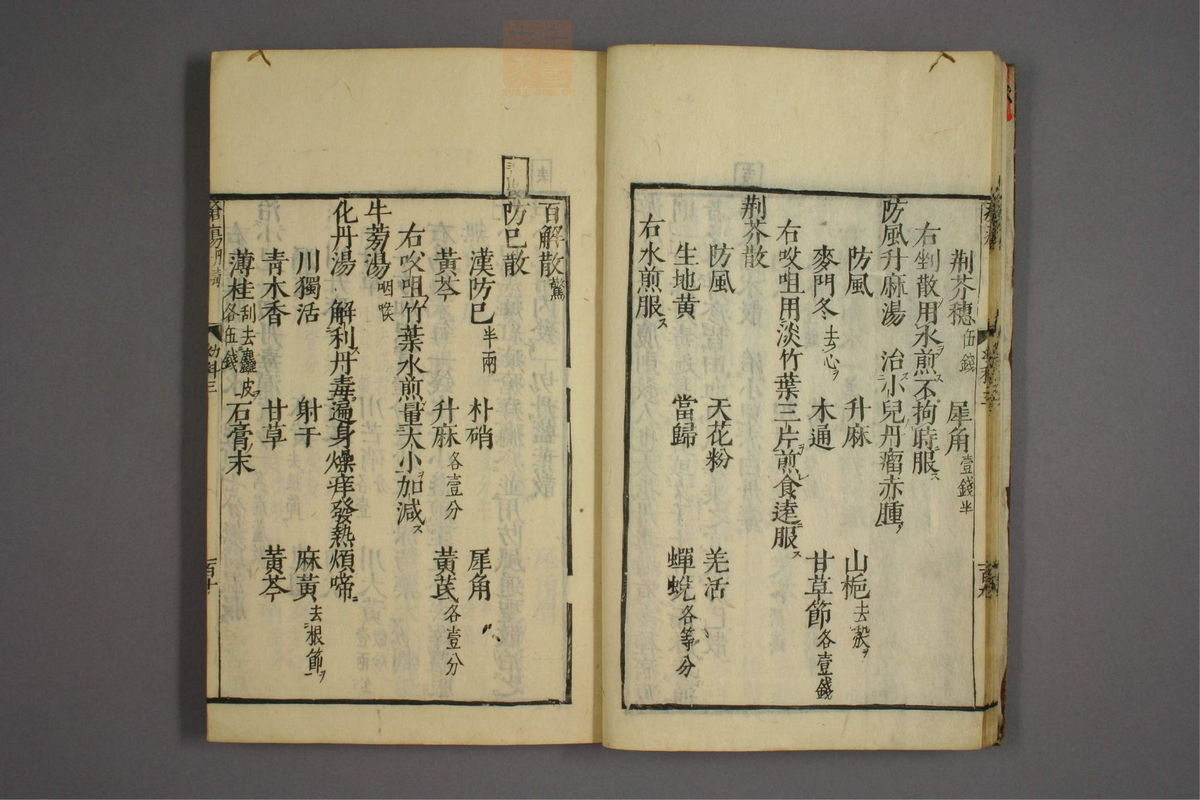 荆芥穗伍錢 犀角壹錢半
右剉散用水煎不拘時服ス
防風升麻湯 治小兒丹瘤赤腫
防風 升麻 山梔去殼ヲ
麥門冬去心ヲ 木通 甘草節各壹錢
右㕮咀用淡竹葉三片煎食遠服ス
荆芥散
防風 天花粉 羌活
生地黄 當歸 蟬蛻各等分
右水煎服ス
百解散驚
防已散
漢防已半兩 朴硝 犀角
黄芩 升麻各壹分 黄芪各壹分
右㕮咀竹葉水煎量大小ヲ加減ス
牛蒡湯咽喉
化丹湯 解利丹毒遍身燥痒發熱煩啼
川獨活 射干 麻黄去根節ヲ
青木香 甘草 黄芩
薄桂刮去麤皮ヲ各伍錢 石膏末
幼科三
百十